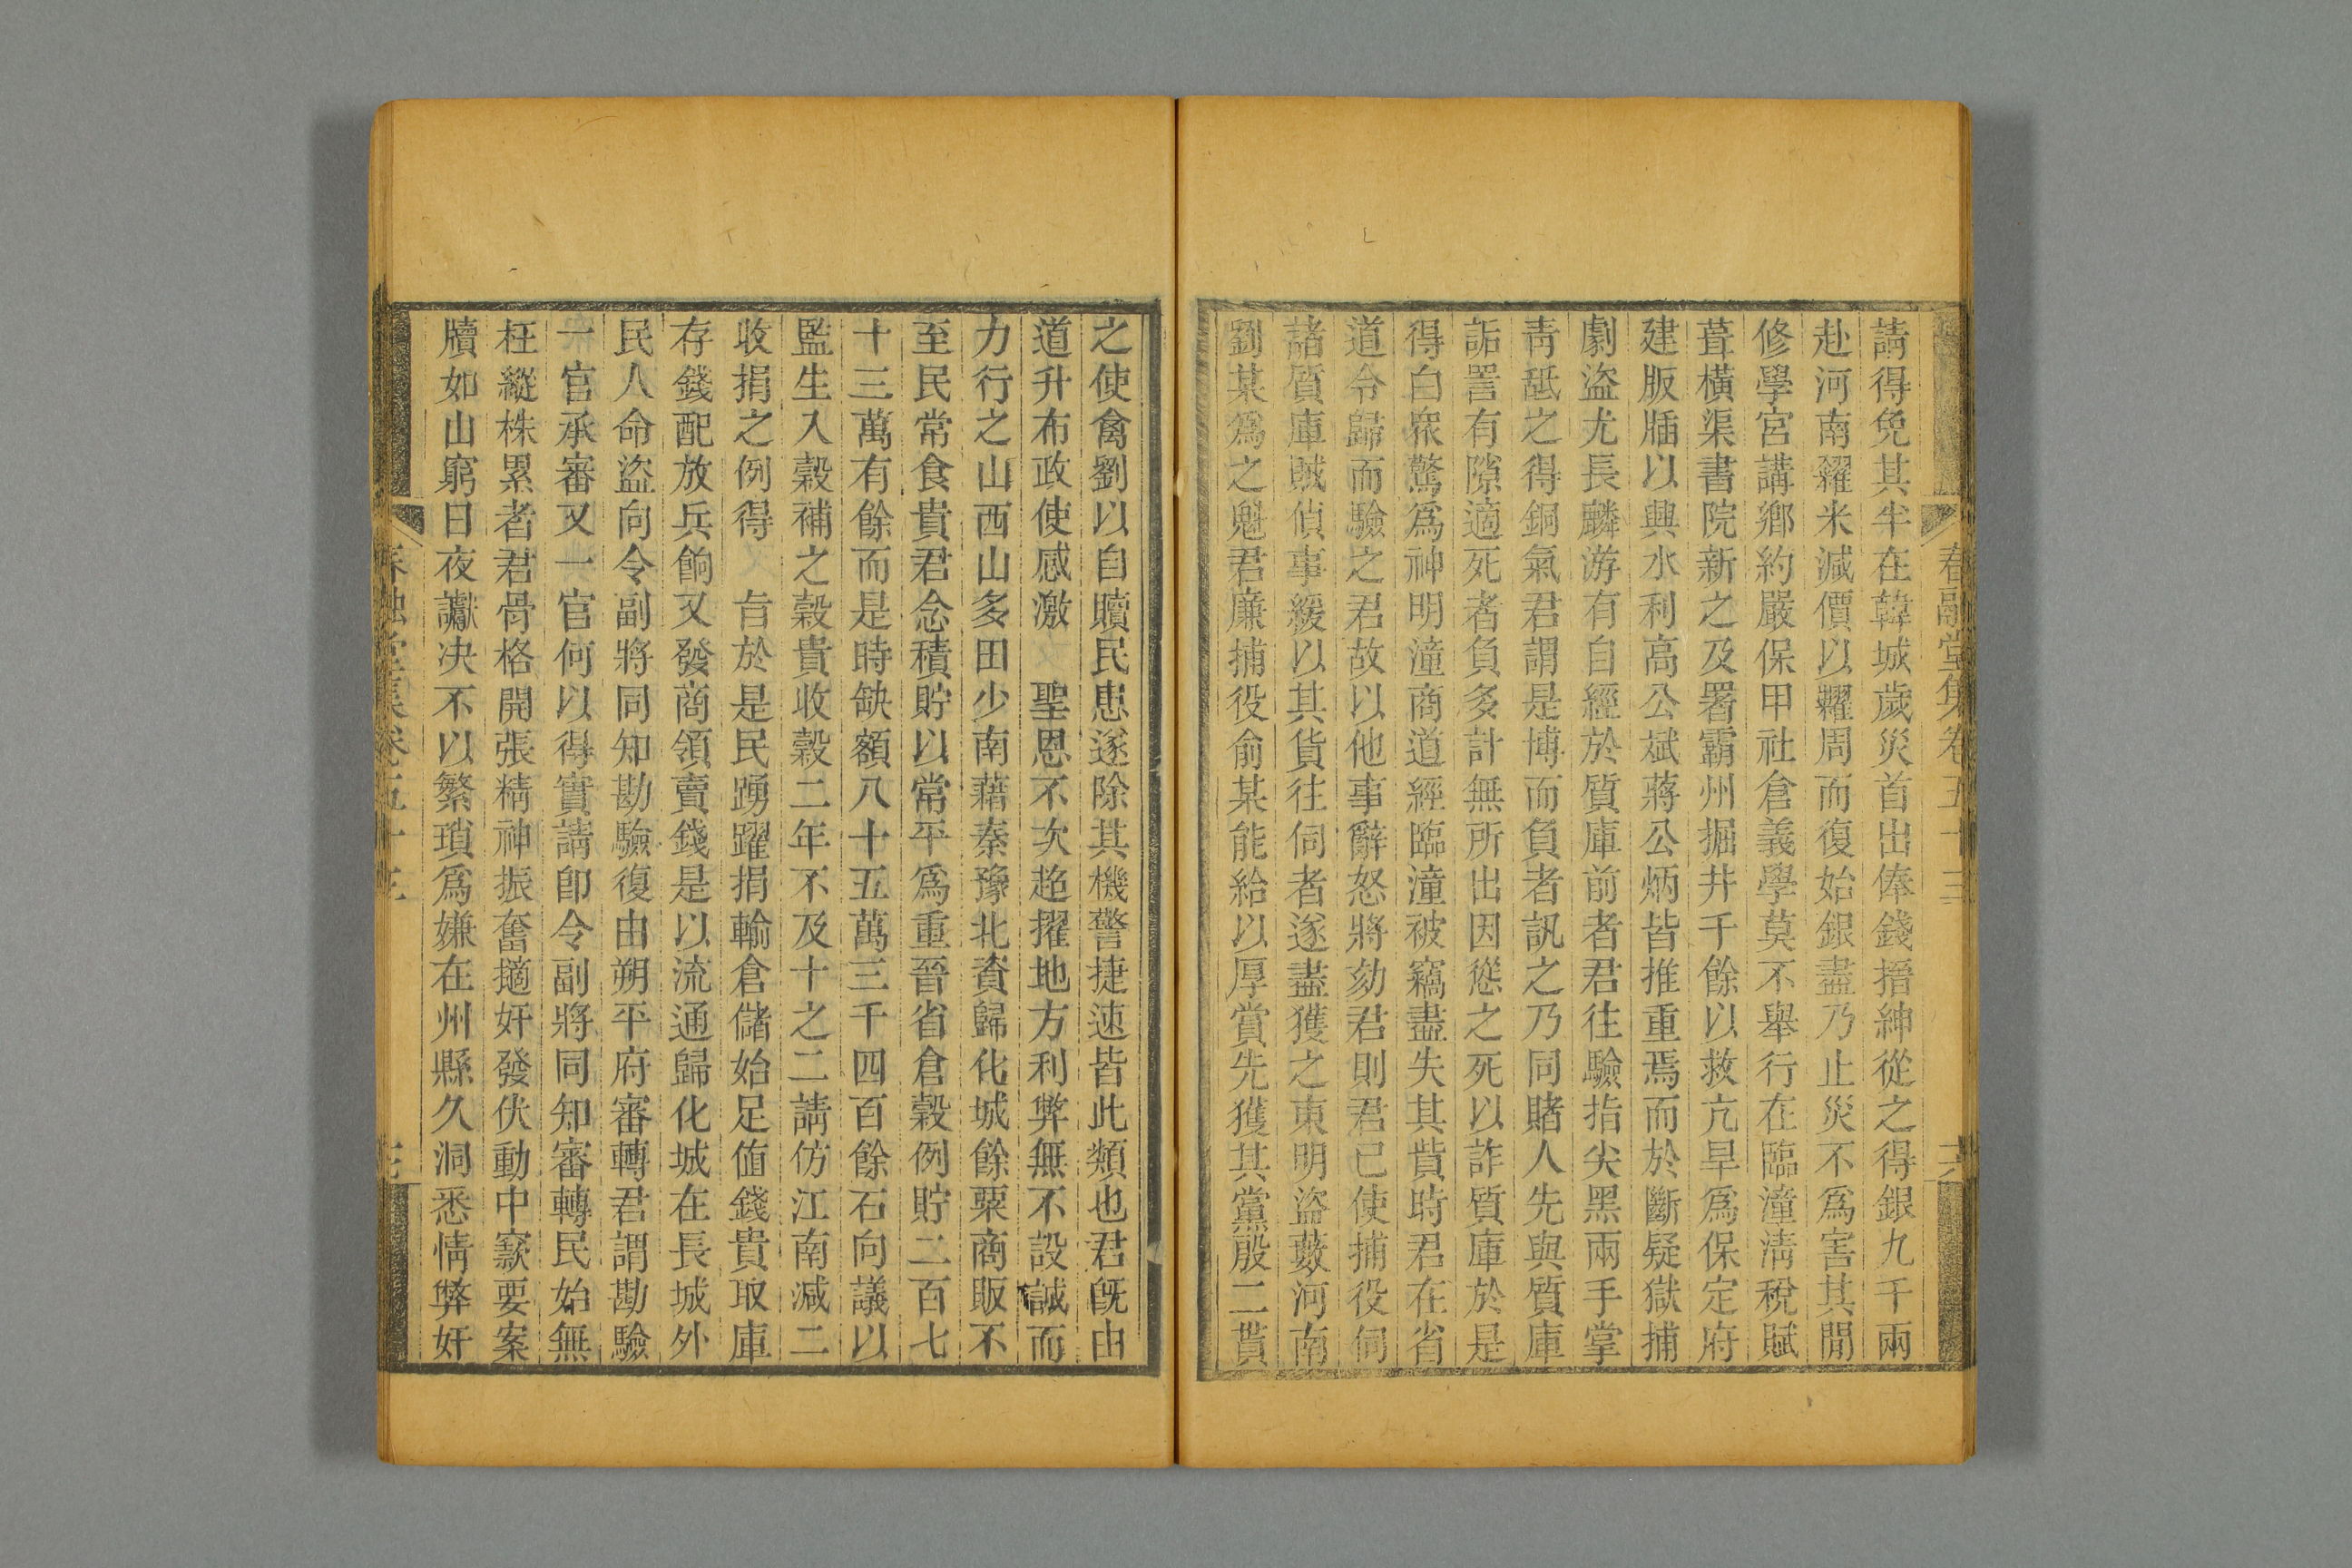 春融堂集卷五十三
請得免其半在韓城歲災首出俸錢搢紳從之得銀九千兩
赴河南糴米減價以糶周而復始銀盡乃止災不爲害其閒
修學宮講鄉約嚴保甲社倉義學莫不舉行在臨潼淸稅賦
葺橫渠書院新之及署霸州掘井千餘以救亢旱爲保定府
建版牐以興水利高公斌蔣公炳皆推重焉而於斷疑獄捕
劇盜尤長麟游有自經於質庫前者君往驗指尖黑兩手掌
靑舐之得銅氣君謂是博而負者訊之乃同賭人先與質庫
詬詈有隙適死者負多計無所出因慫之死以詐質庫於是
得白衆驚爲神明潼商道經臨潼被竊盡失其貲時君在省
道令歸而驗之君故以他事辭怒將劾君則君已使捕役伺
諸質庫賊偵事緩以其貨往伺者遂盡獲之東明盜藪河南
劉某爲之魁君廉捕役俞某能給以厚賞先獲其黨殷二貰
之使禽劉以自贖民患遂除其機警捷速皆此類也君旣由
道升布政使感激 聖恩不次超擢地方利弊無不設誠而
力行之山西山多田少南藉秦豫北資歸化城餘粟商販不
至民常食貴君念積貯以常平爲重晉省倉穀例貯二百七
十三萬有餘而是時缺額八十五萬三千四百餘石向議以
監生入穀補之穀貴收穀二年不及十之二請仿江南減二
收捐之例得 旨於是民踴躍捐輸倉儲始足値錢貴取庫
存錢配放兵餉又發商領賣錢是以流通歸化城在長城外
民人命盜向令副將同知勘驗復由朔平府審轉君謂勘驗
一官承審又一官何以得實請卽令副將同知審轉民始無
枉縱株累者君骨格開張精神振奮擿奸發伏動中窾要案
牘如山窮日夜讞決不以繁瑣爲嫌在州縣久洞悉情弊奸